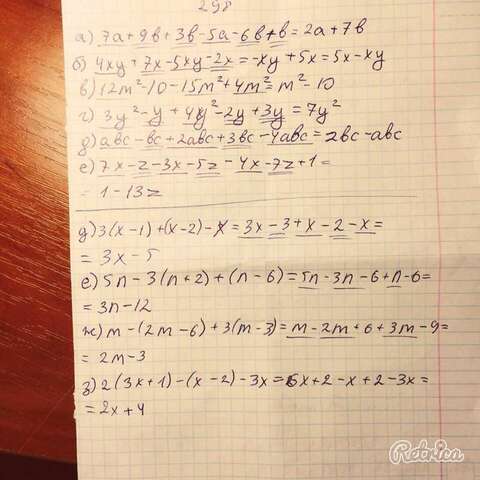 298
а) 7a+9b+3b-5a-6b+b=2a+7b
б) 4xy+7x-5xy-2x=-xy+5x=5x-xy
в) 12m²-10-15m²+4m²=m²-10
г) 3y²-y+4y²-2y+3y=7y²
д) abc-bc+2abc+3bc-4abc=2bc-abc
е) 7x-z-3x-5z-4x-7z+1=
=1-13z
д) 3(x-1)+(x-2)-x=3x-3+x-2-x=
=3x-5
е) 5n-3(n+2)+(n-6)=5n-3n-6+n-6=
=3n-12
ж) m-(2m-6)+3(m-3)=m-2m+6+3m-9=
=2m-3
з) 2(3x+1)-(x-2)-3x=6x+2-x+2-3x=
=2x+4
Retrica